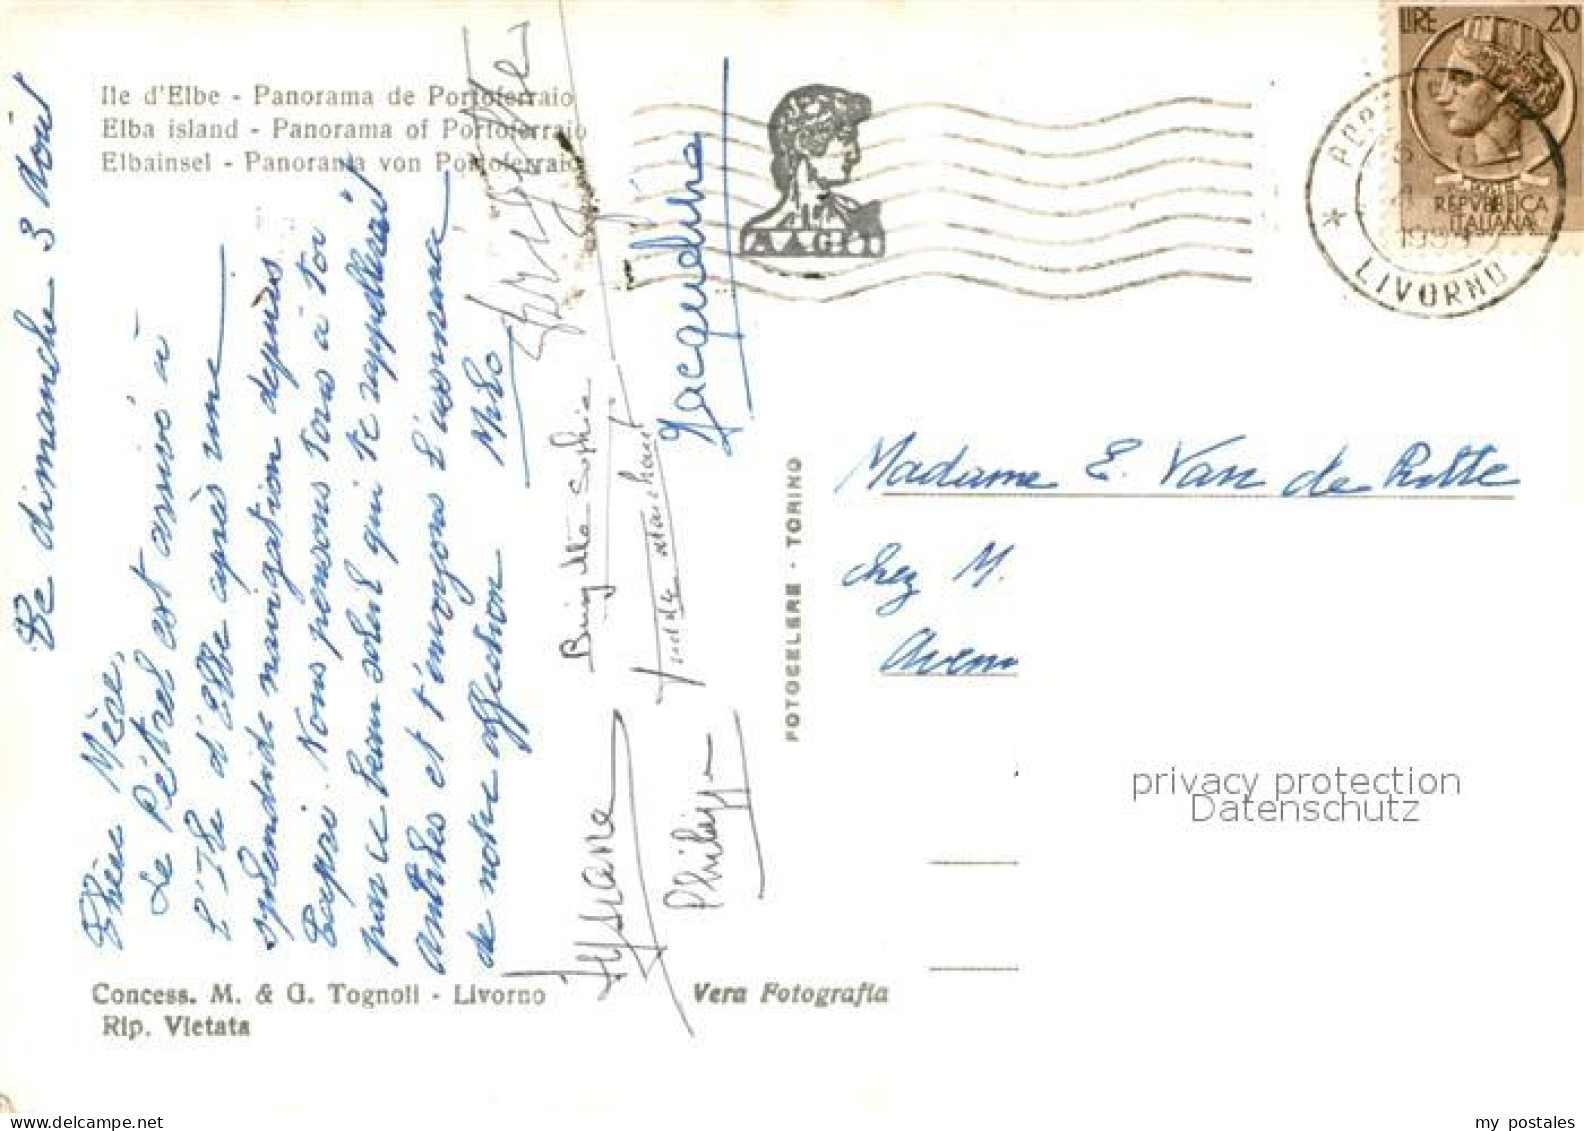 Ile d'Elbe - Panorama de Portoferraio
Elba island - Panorama of Portoferraio
Elbainsel - Panorama von Portoferraio
Le dimanche 3 Août
Chère Mère,
Le Pétrel est arrivé à
l'Ile d'Elbe après une
splendide navigation depuis
Capri. Nous pensons tous à toi
par ce beau soleil qui te rappellerait
Antibes et t'envoyons l'assurance
de notre affection
Brigitte Sophie
Jacqueline
Philippe
FOTOCELERE - TORINO
Concess. M. & G. Tognoli - Livorno
Rip. Vietata
Vera Fotografia
LIRE 20
POSTE
REPVBBLICA
ITALIANA
LIVORNO
Madame E. Van de Putte
chez M.
privacy protection
Datenschutz
my postales